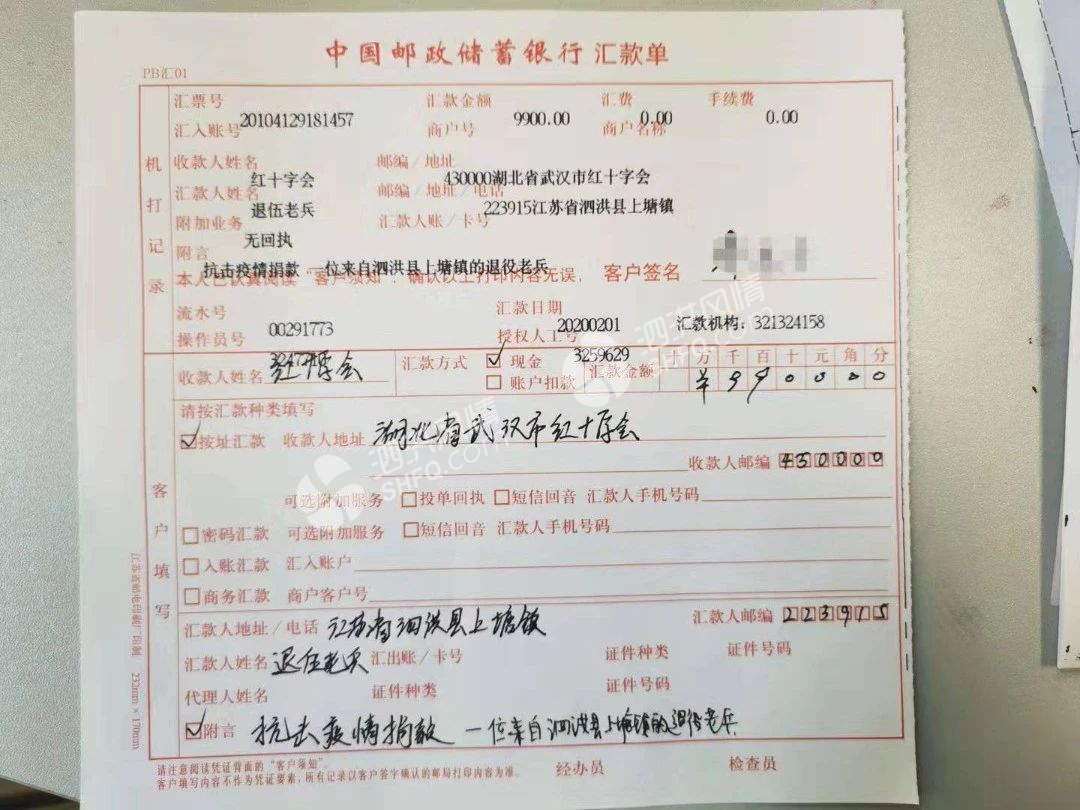 中国邮政储蓄银行 汇款单
PB汇01
机打记录
汇票号 汇款金额 汇费 手续费
20104129181457 9900.00 0.00 0.00
汇入账号 商户号 商户名称
收款人姓名 邮编/地址
红十字会 430000湖北省武汉市红十字会
汇款人姓名 邮编/地址/电话
退伍老兵 223915江苏省泗洪县上塘镇
附加业务 汇款人账/卡号
无回执
附言
抗击疫情捐款 一位来自泗洪县上塘镇的退役老兵
本人已认真阅读“客户须知”,确认以上打印内容无误, 客户签名
流水号 汇款日期
00291773 20200201 汇款机构:321324158
操作员号 授权人工号
3259629
客户填写
收款人姓名 红十字会 汇款方式 ☑ 现金 汇款金额 万 千 百 十 元 角 分
☐ 账户扣款 ¥ 9 9 0 0 0 0
请按汇款种类填写
☑按址汇款 收款人地址 湖北省武汉市红十字会
收款人邮编 430000
可选附加服务 ☐投单回执 ☐短信回音 汇款人手机号码
☐密码汇款 可选附加服务 ☐短信回音 汇款人手机号码
☐入账汇款 汇入账户
☐商务汇款 商户客户号
汇款人地址/电话 江苏省泗洪县上塘镇 汇款人邮编 223915
汇款人姓名 退伍老兵 汇出账/卡号 证件种类 证件号码
代理人姓名 证件种类 证件号码
☑附言 抗击疫情捐款 一位来自泗洪县上塘镇的退役老兵
请注意阅读凭证背面的“客户须知”。
客户填写内容不作为凭证要素,所有记录以客户签字确认的邮局打印内容为准。
经办员 检查员
232mm×170mm
泗洪风情
SHFQ.COM
泗洪风情
SHFQ.COM